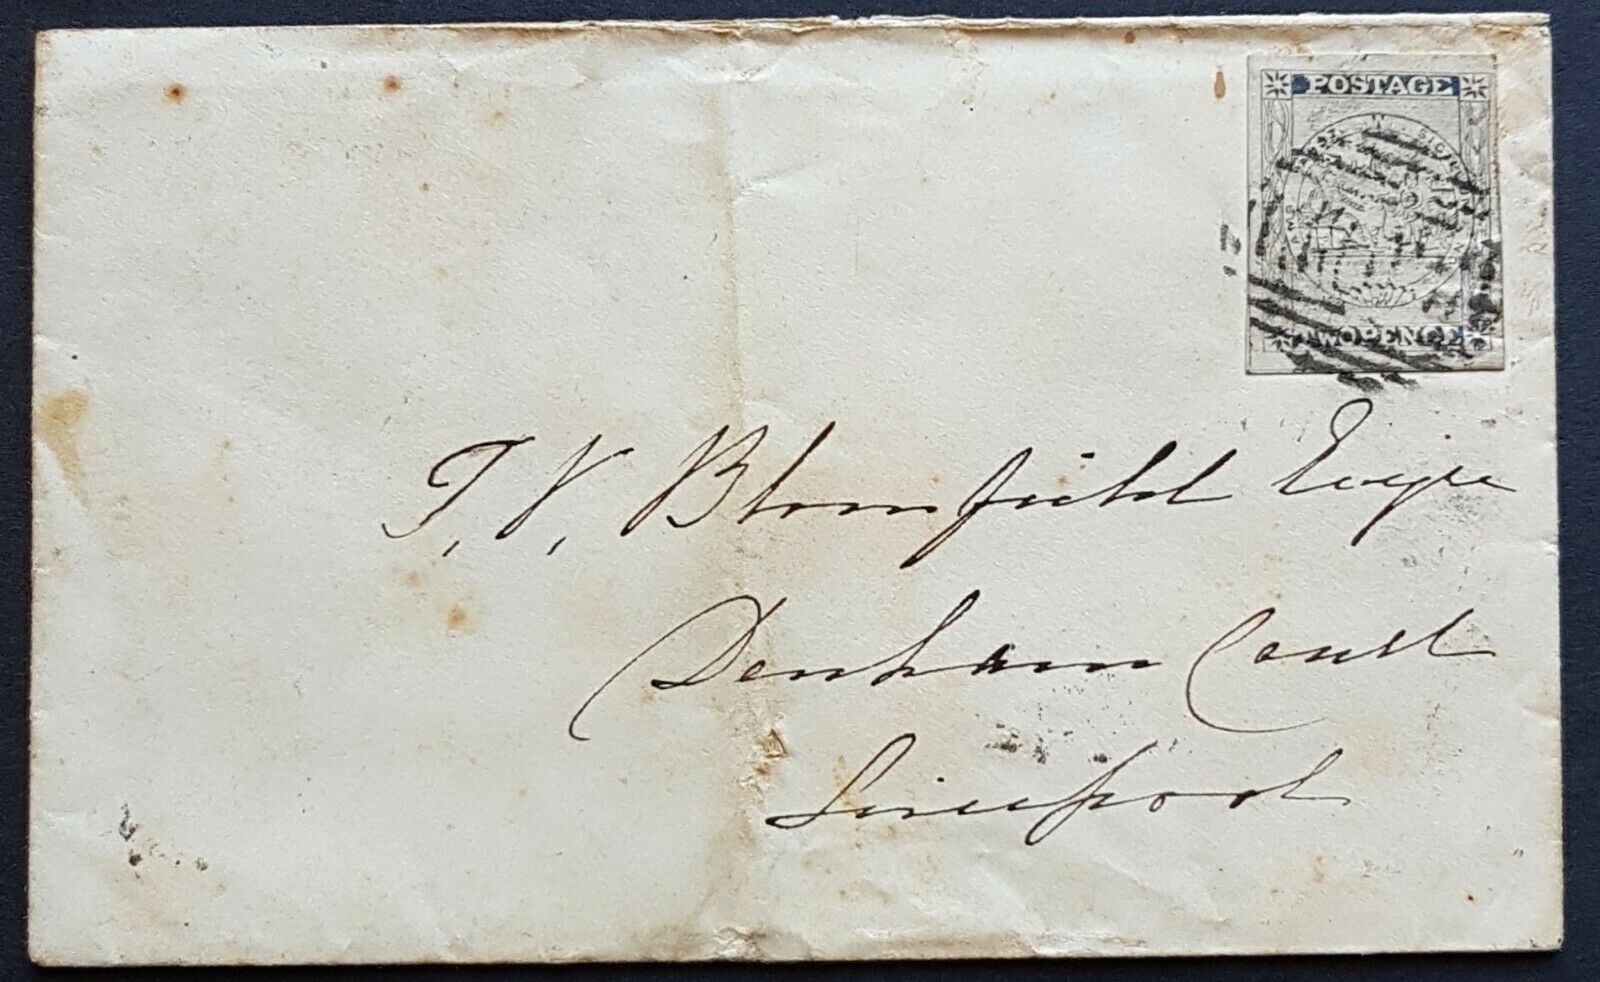 POSTAGE
SIGILLUM
TWOPENCE
T. V. Blomfield Esqre
Denham Court
Liverpool